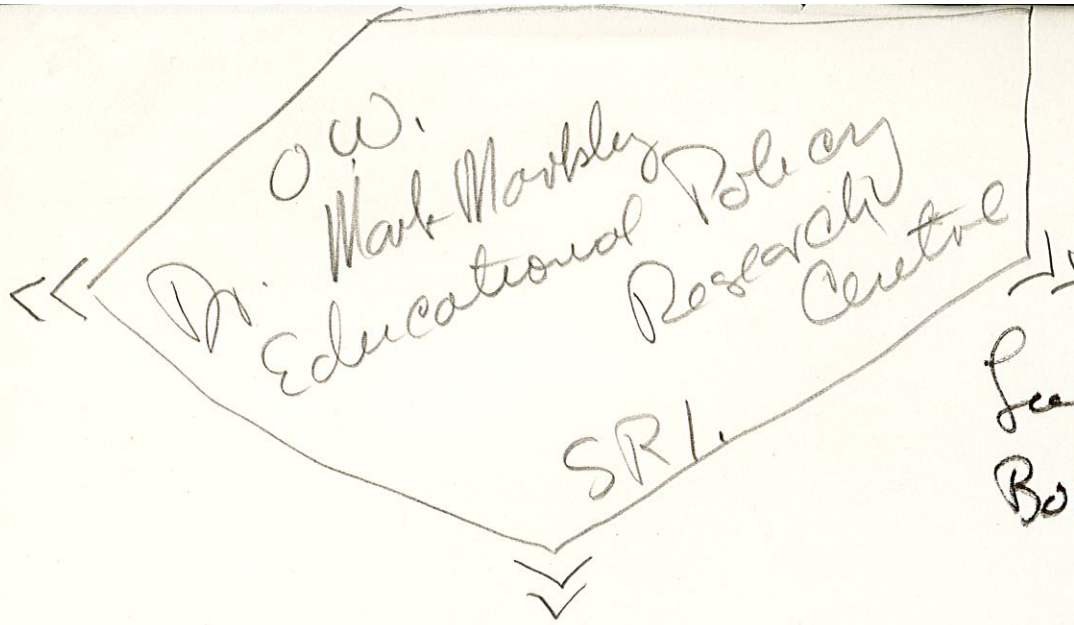 O.W.
Dr. Mark Markley
Educational Policy
Research
Centre
SRI.
Bo